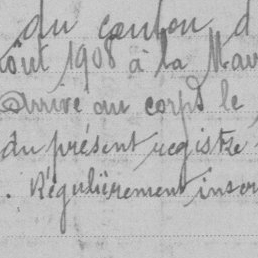 du canton d
août 1908 à la Mar
Arrivé au corps le
du présent registre
. Régulièrement inscr